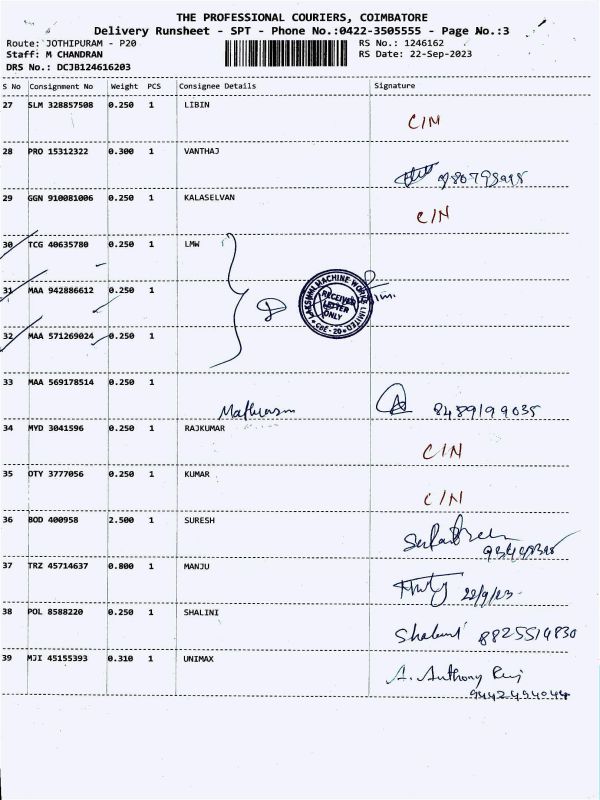 THE PROFESSIONAL COURIERS, COIMBATORE
Delivery Runsheet - SPT - Phone No.:0422-3505555 - Page No.:3
Route: JOTHIPURAM - P20 RS No.: 1246162
Staff: M CHANDRAN RS Date: 22-Sep-2023
DRS No.: DCJB124616203
S No Consignment No Weight PCS Consignee Details Signature
27 SLM 328857508 0.250 1 LIBIN
C/N
28 PRO 15312322 0.300 1 VANTHAJ
29 GGN 910081006 0.250 1 KALASELVAN
C/N
30 TCG 40635780 0.250 1 LMW
31 MAA 942886612 0.250 1
LAKSHMI MACHINE WORKS LIMITED
RECEIVED
LETTER
ONLY
CBE - 20
32 MAA 571269024 0.250 1
33 MAA 569178514 0.250 1
8489199035
34 MYD 3041596 0.250 1 RAJKUMAR
C/N
35 OTY 3777056 0.250 1 KUMAR
C/N
36 BOD 400958 2.500 1 SURESH
37 TRZ 45714637 0.800 1 MANJU
22/9/23
38 POL 8588220 0.250 1 SHALINI
8825519830
39 MJI 45155393 0.310 1 UNIMAX
A. Anthony